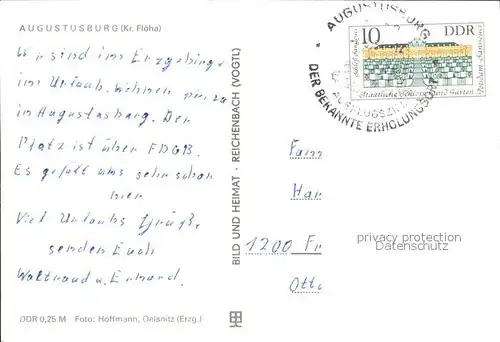 AUGUSTUSBURG (Kr. Flöha)
Wir sind im Erzgebirge
im Urlaub. Wohnen privat
in Augustusburg. Der
Platz ist über FDGB.
Es gefällt uns sehr schön
hier
Viel Urlaubs Grüße
senden Euch
Waltraud u. Erhard.
DDR 0,25 M Foto: Hoffmann, Oelsnitz (Erzg.)
BILD UND HEIMAT · REICHENBACH (VOGTL)
AUGUSTUSBURG
DER BEKANNTE ERHOLUNGSORT
10 DDR
Staatliche Schlösser und Gärten
Potsdam-Sanssouci
Fam
Han
1200 Fr
Otto
privacy protection
Datenschutz